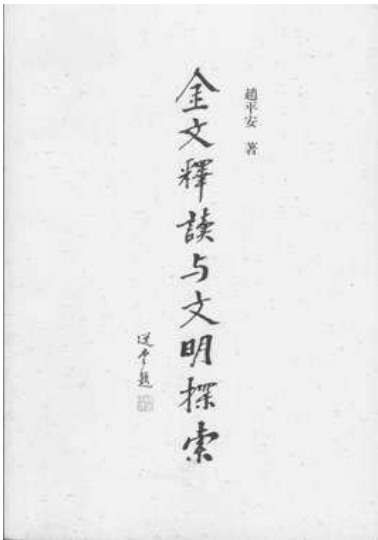 趙平安 著
金文釋讀与文明探索
選堂題